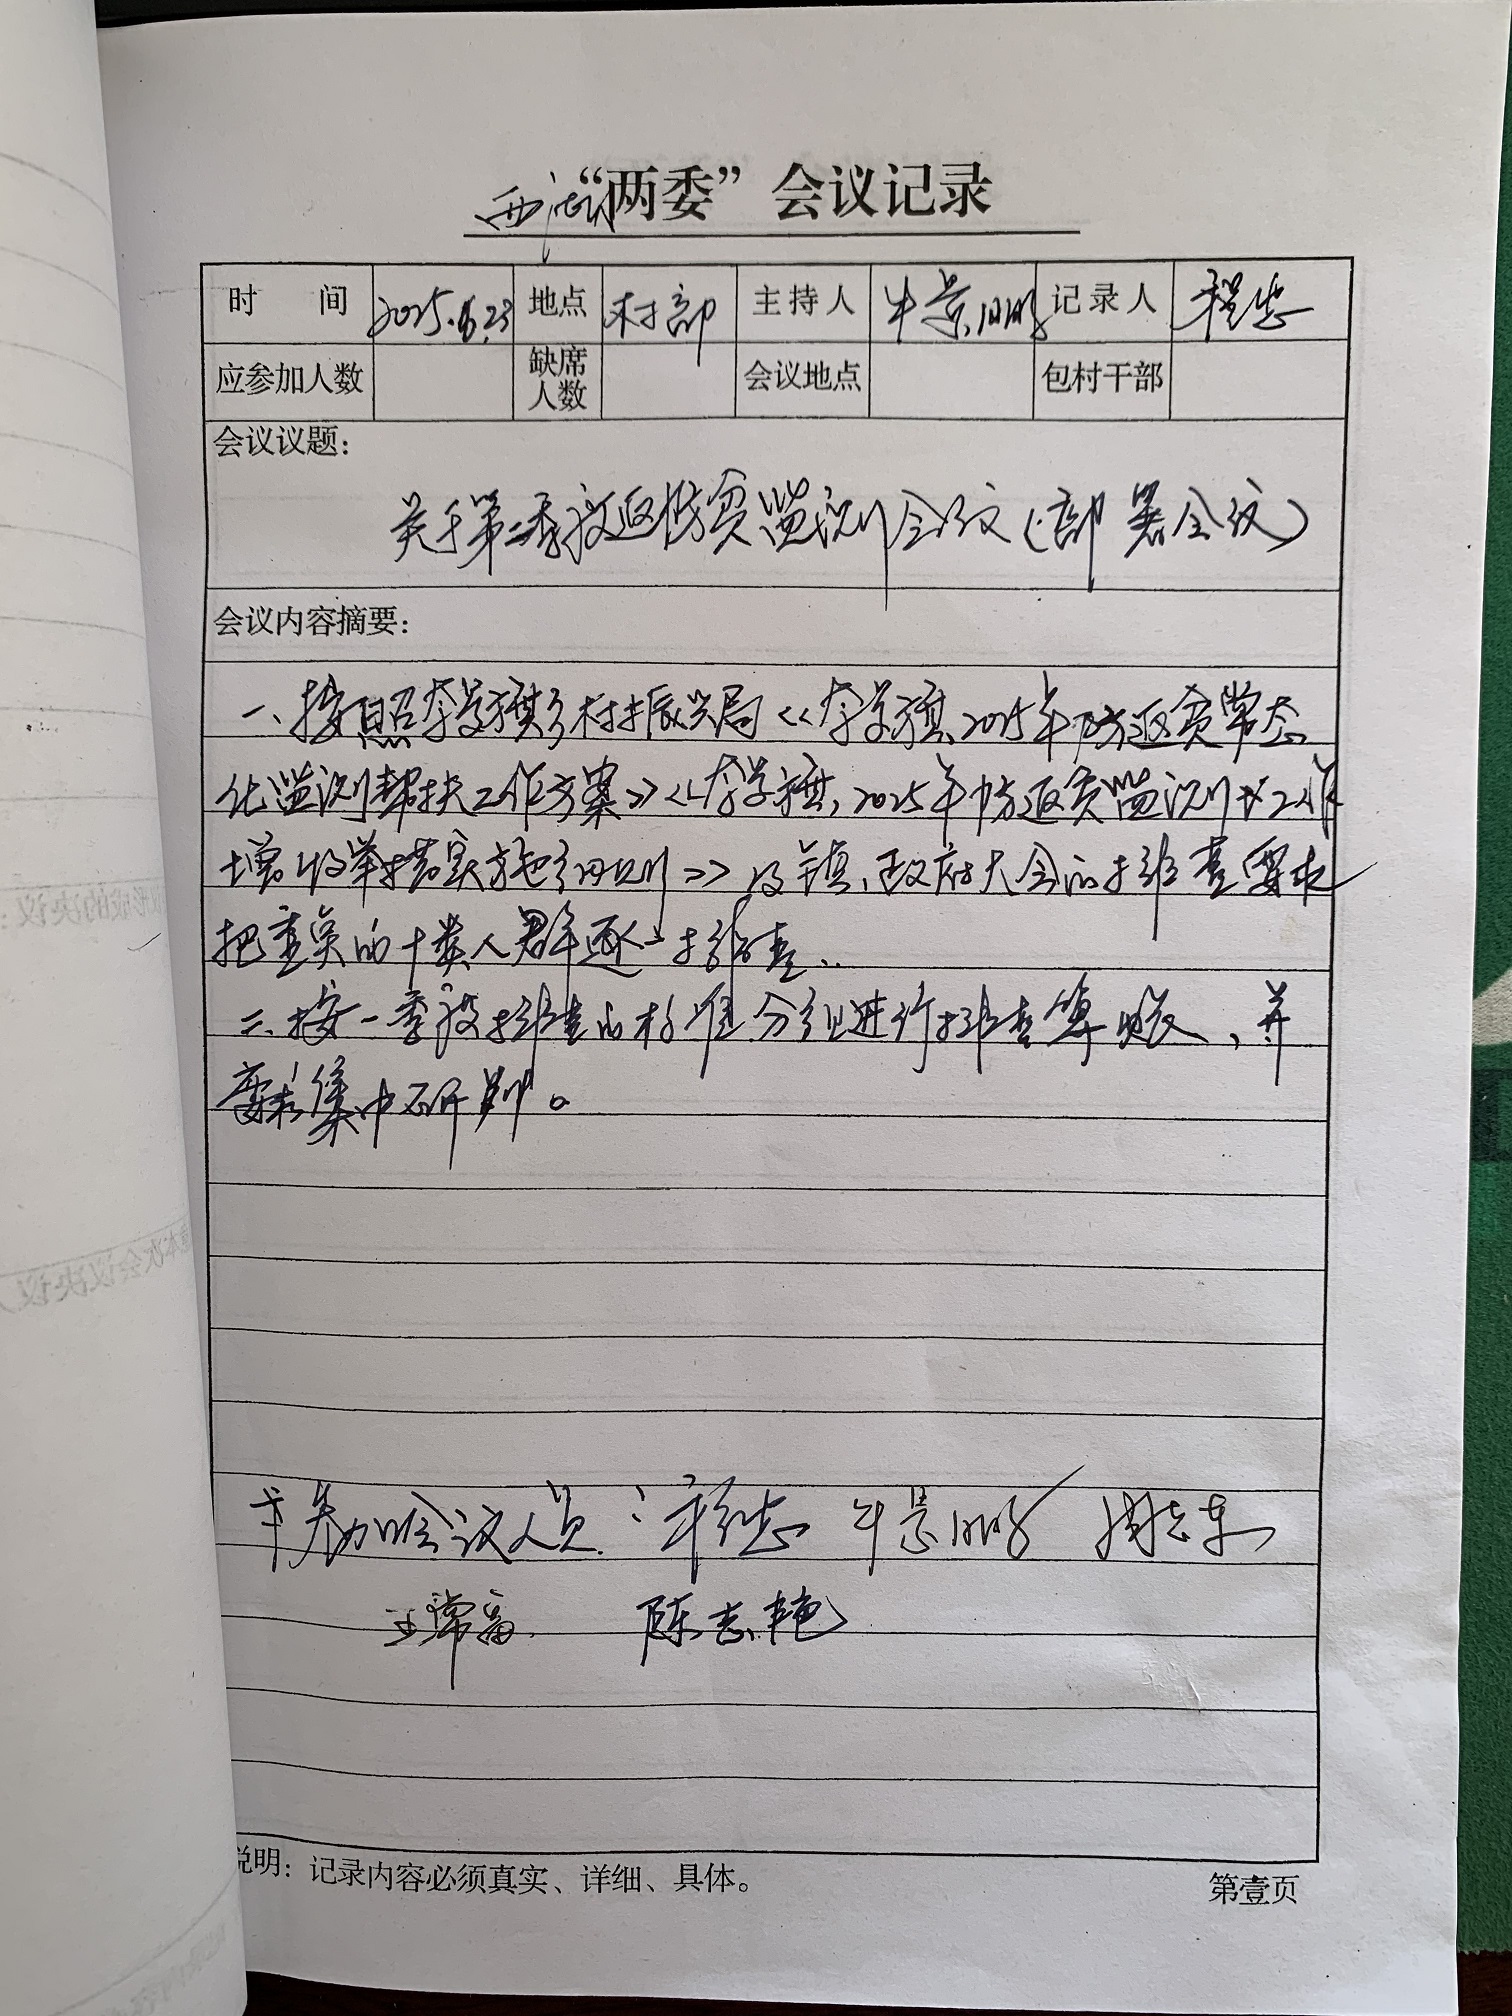 西 “两委”会议记录
时 间 2025.6.23 地点 村部 主持人 牛景鹏 记录人 程志
应参加人数 缺席人数 会议地点 包村干部
会议议题：
关于第二季度返防贫监测会议（部署会议）
会议内容摘要：
一、按照 旗乡村振兴局《 旗2025年防返贫常态
化监测帮扶工作方案》《 旗2025年防返贫监测 工作
增收举措实施细则》及镇政府大会的排查要求
把重点的十类人群逐一排查。
二、按一季度排查的标准分组进行排查算账，并
要求集中研判。
参加会议人员：程志 牛景鹏 周志东
王常富 陈志艳
说明：记录内容必须真实、详细、具体。
第壹页